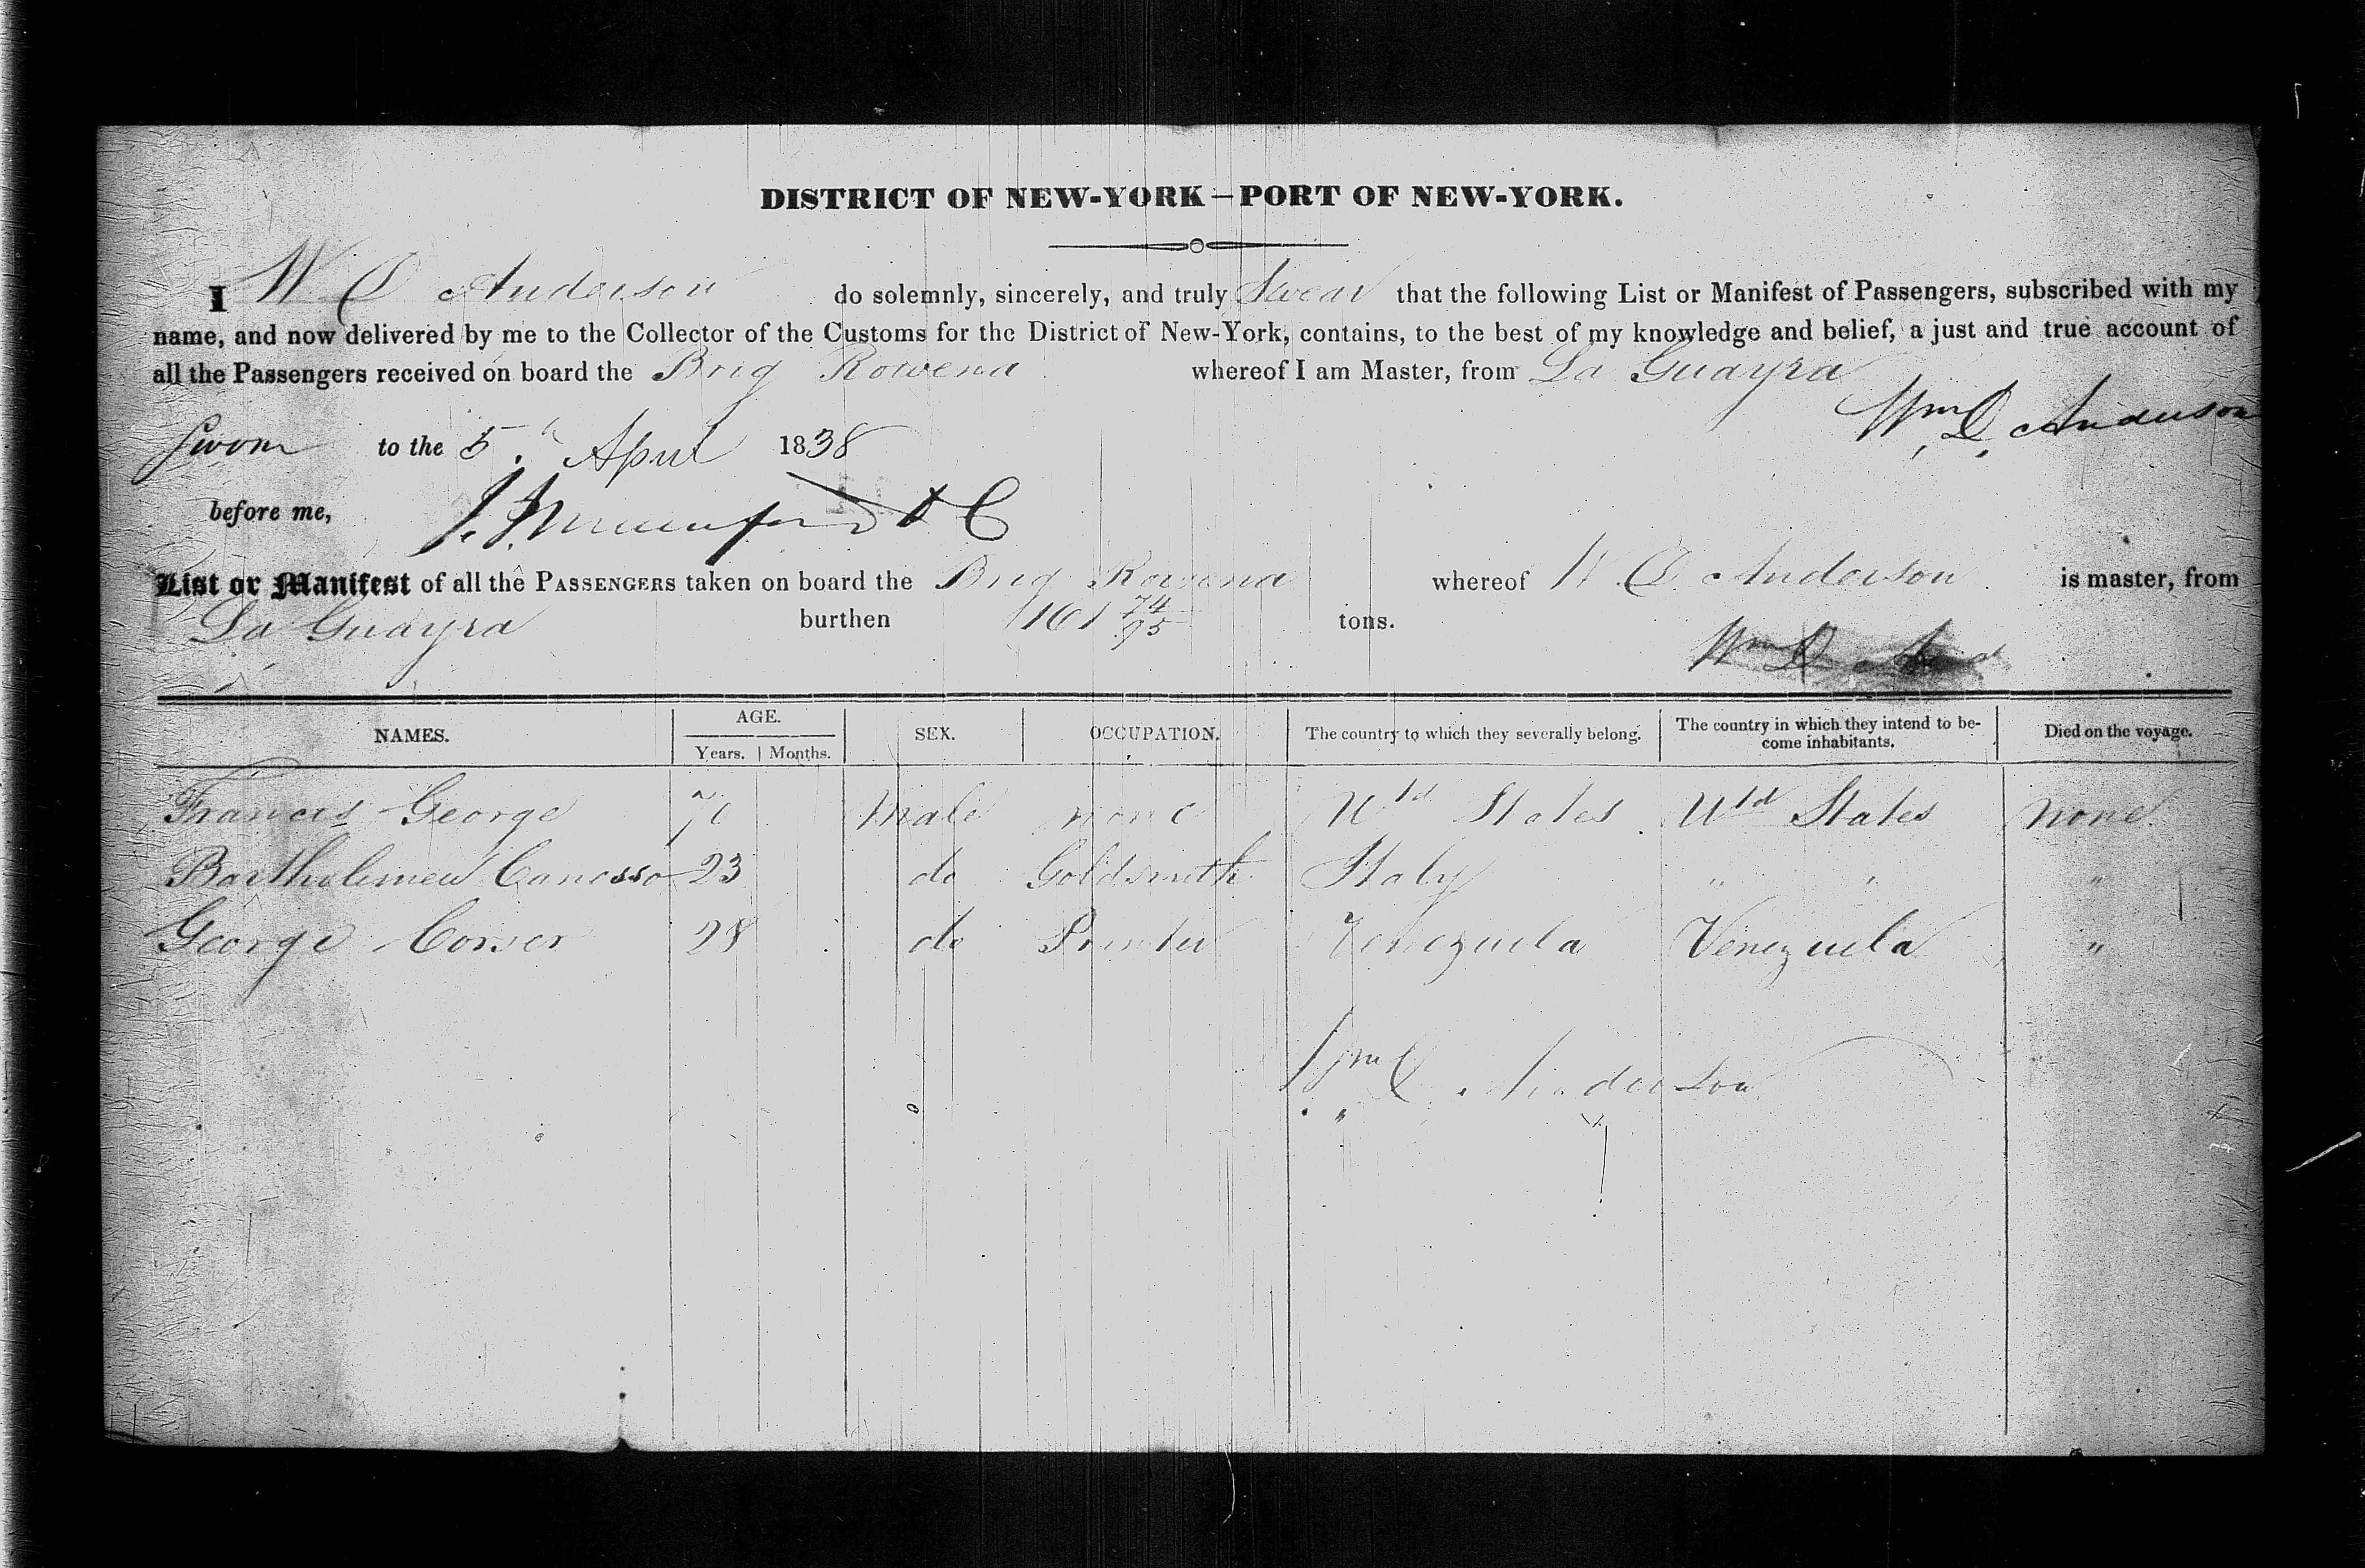 DISTRICT OF NEW-YORK—PORT OF NEW-YORK.
I W D Anderson do solemnly, sincerely, and truly Swear that the following List or Manifest of Passengers, subscribed with my
name, and now delivered by me to the Collector of the Customs for the District of New-York, contains, to the best of my knowledge and belief, a just and true account of
all the Passengers received on board the Brig Rowena whereof I am Master, from La Guayra
Wm D. Anderson
Sworn to the 5th April 1838
before me,
List or Manifest of all the PASSENGERS taken on board the Brig Rowena whereof W D Anderson is master, from
La Guayra burthen 161 74/95 tons.
Wm D
NAMES. AGE. SEX. OCCUPATION. The country to which they severally belong. The country in which they intend to be-
come inhabitants. Died on the voyage.
Years. Months.
Francis George Male none Utd States Utd States none
Bartholemew Canosso 23 do Goldsmith Italy " " "
George Corser 28 do Printer Venezuela Venezuela "
Wm D Anderson